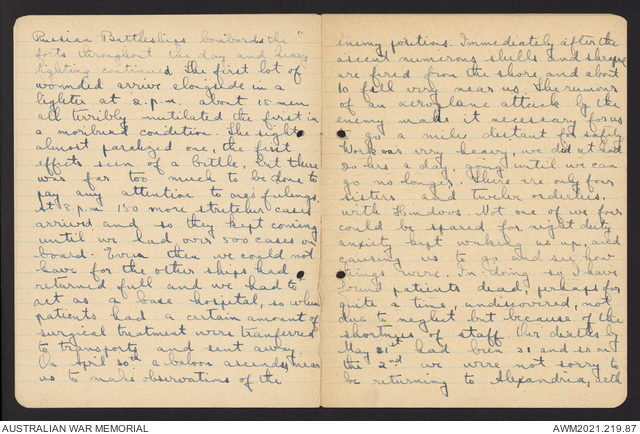 Russian Battleships bombards the
forts throughout the day and heavy
fighting continued. The first lot of
wounded arrive alongside in a
lighter at 2.p.m. about 15 men
all terribly mutilated the first in
a moribund condition. The sight
almost paralized one, the first
effects seen of a battle, but there
was far too much to be done to
pay any attention to one's feelings.
At 8 p.m 150 more stretcher cases
arrived and so they kept coming
until we had over 500 cases on
board. Even then we could not
leave for the other ships had
returned full and we had to
act as a base hospital, so when
patients had a certain amount of
surgical treatment were tranferred
to transports and sent away.
On April 30th a baloon ascends near
us to make observations of the
enemy positions. Immediately after the
ascent numerous shells and shrapnel
are fired from the shore and about
10 fell very near us. The rumour
of an aeroplane attack by the
enemy make it necessary for us
to go a mile distant for safety
Work was very heavy, we did at least
20 hrs a day, going until we can
go no longer. There are only four
sisters and twelve orderlies,
with Hindoos. Not one of we four
could be spared for night duty
anxity kept waking us up, and
causing us to go and see how
things were. In doing so I have
found patients dead, perhaps for
quite a time, undiscovered, not
due to neglect but because of the
shortness of staff. Our deaths by
May 1st had been 31 and so on
the 2nd we were not sorry to
be returning to Alexandria, with
AUSTRALIAN WAR MEMORIAL
AWM2021.219.87